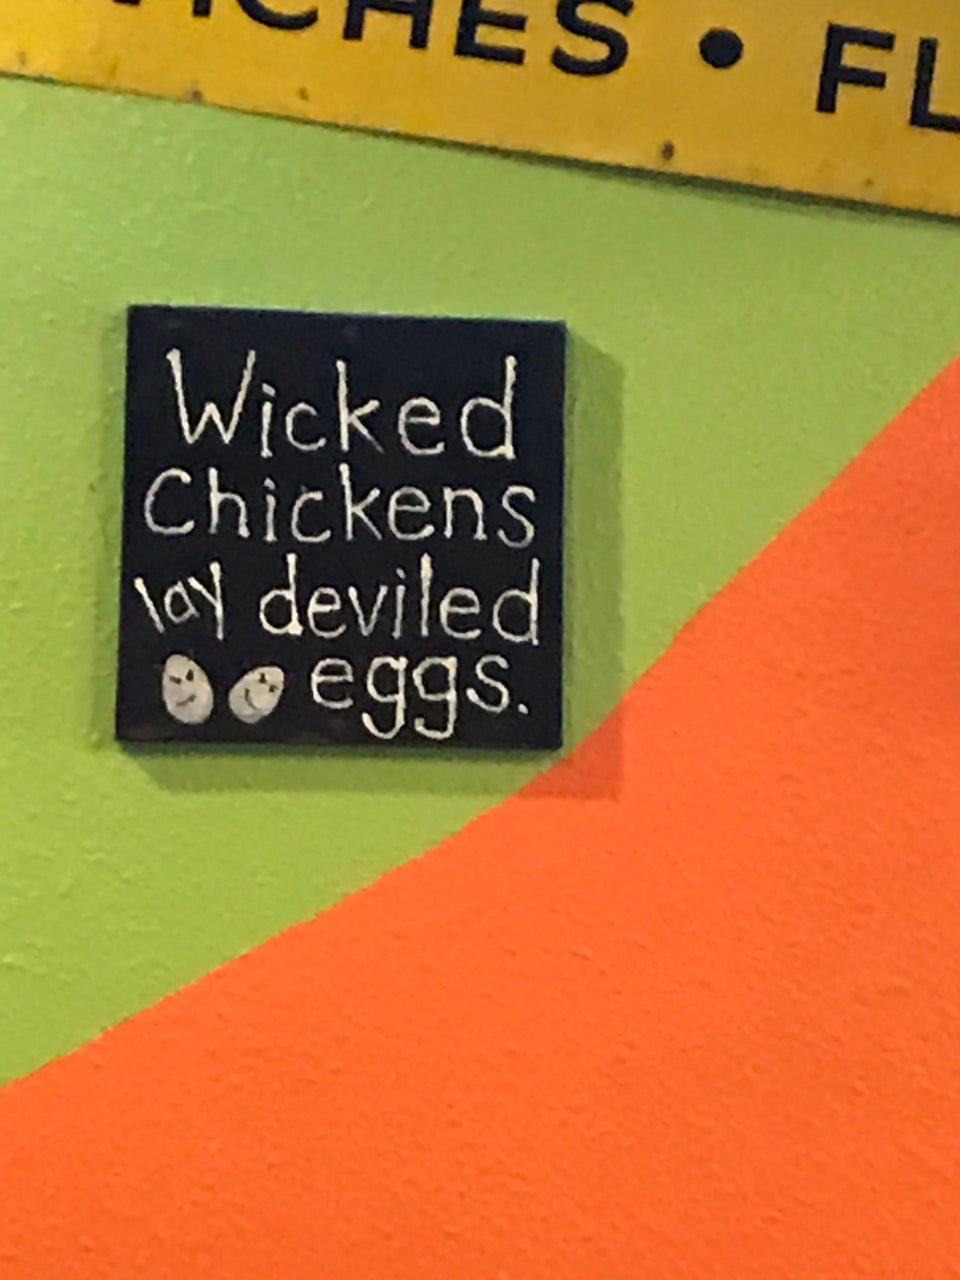 Wicked
Chickens
lay deviled
eggs.